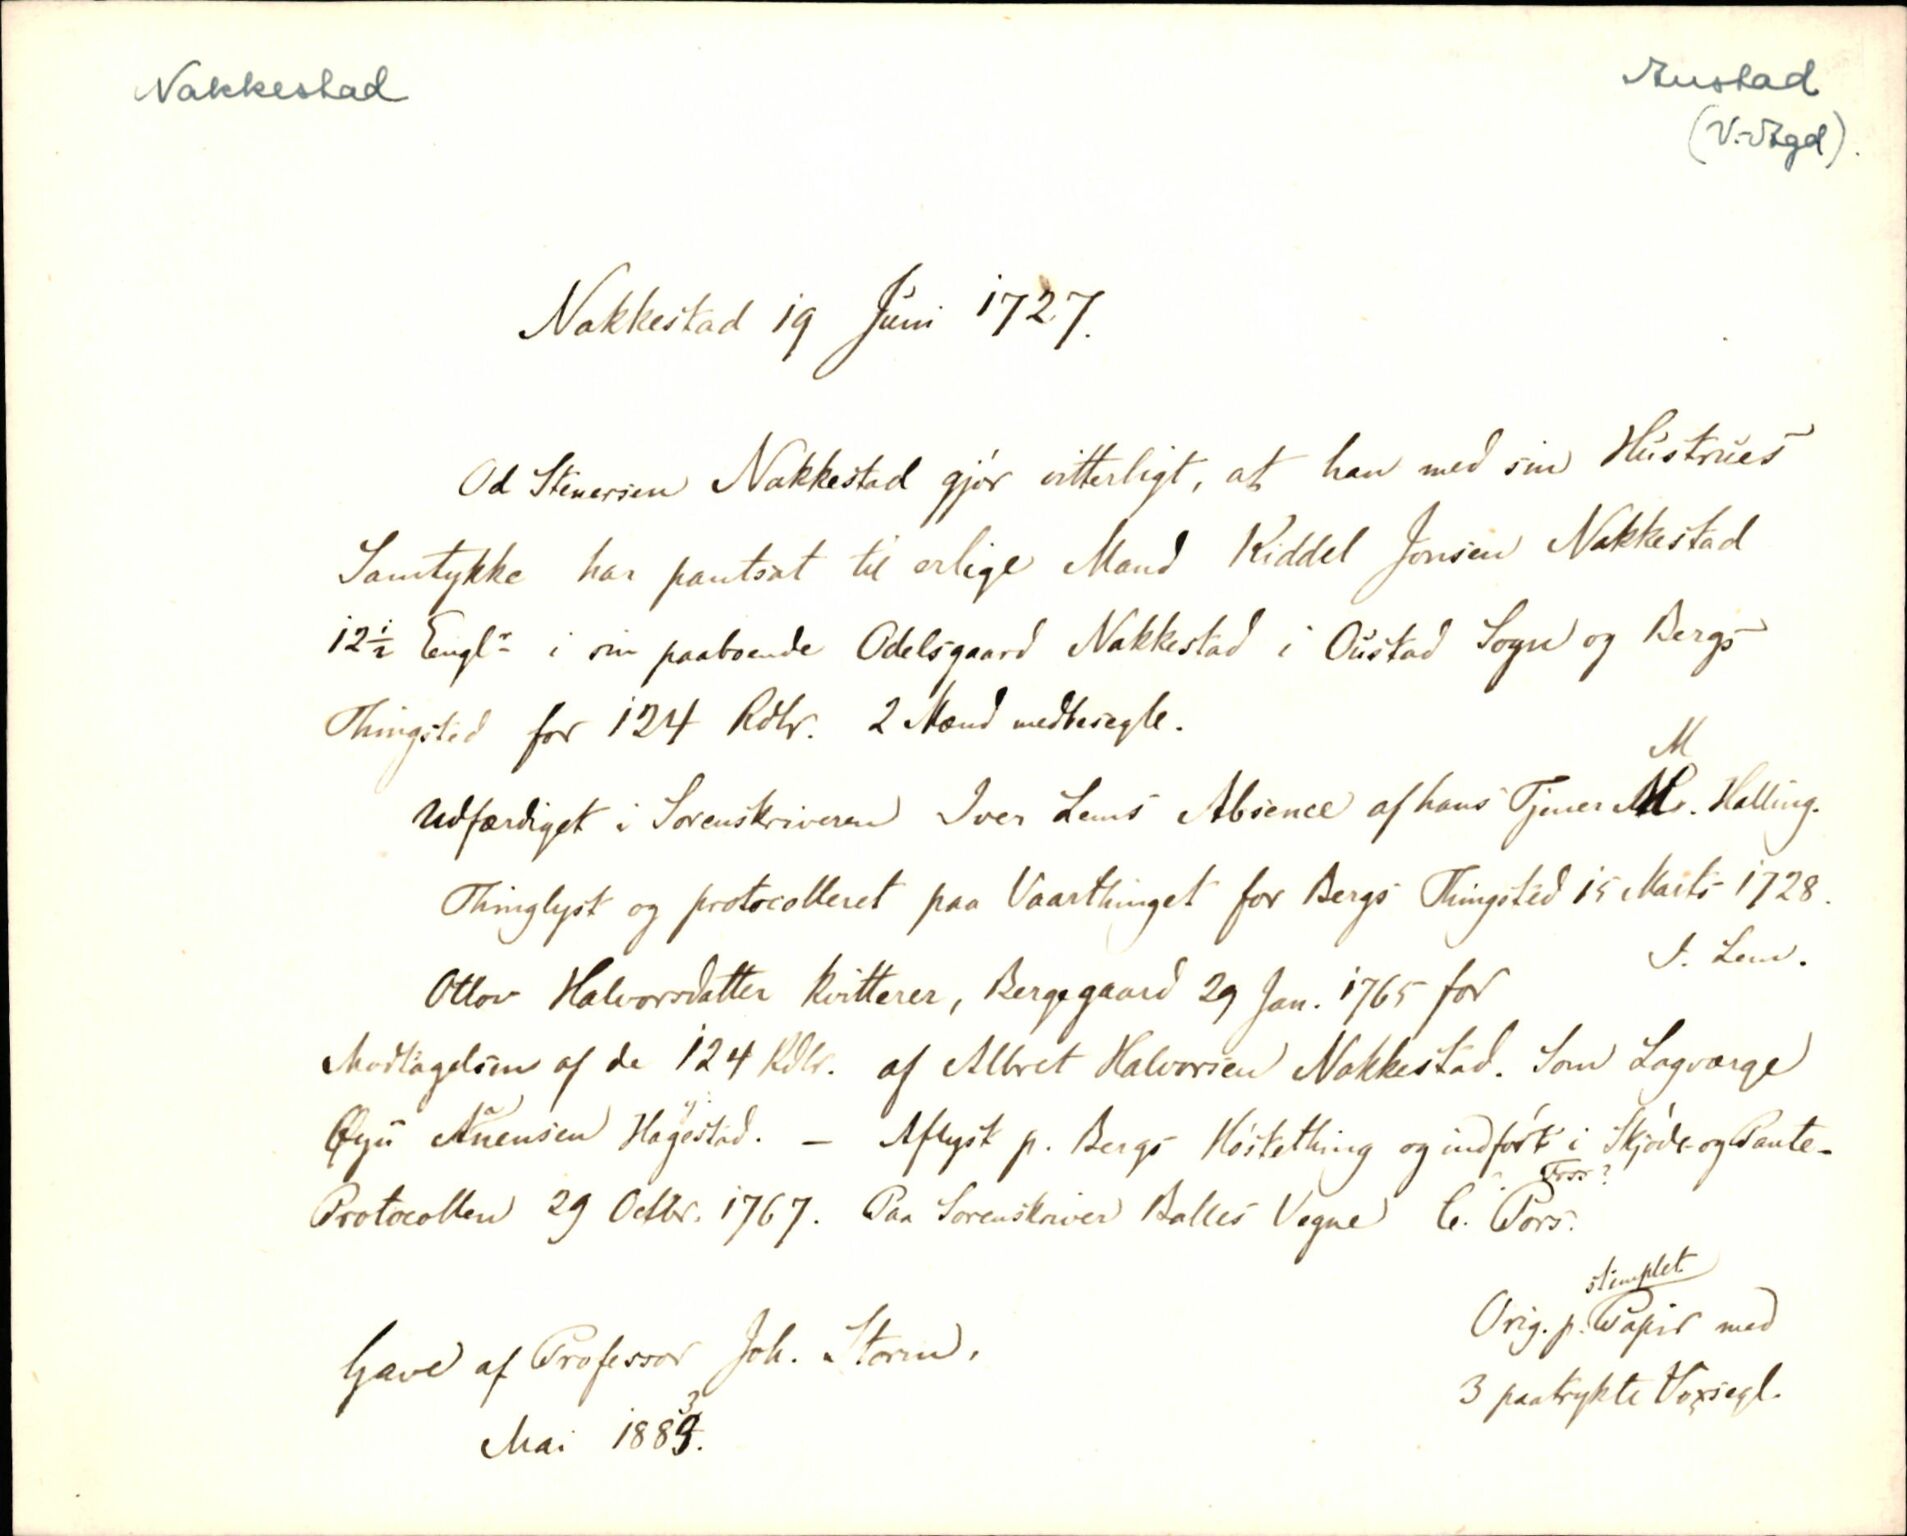 Nakkestad
Austad
(V.-Agd).
Nakkestad 19 Juni 1727.
Od Stenersen Nakkestad gjör vitterligt, at han med sin Hustrues
Samtykke har pantsat til erlige Mand Kiddel Jonsen Nakkestad
12 1/2 Engl^r i sin paaboende Odelsgaard Nakkestad i Oustad Sogn og Bergs
Thingsted for 124 Rdlr. 2 Mænd medbesegle.
M
Udfærdiget i Sorenskriveren Iver Lems Absence af hans Tjener M. Halling.
Thinglyst og protocolleret paa Vaarthinget for Bergs Thingsted 15 Marts 1728.
I. Lem.
Otlov Halvorsdatter kvitterer, Bergegaard 29 Jan. 1765 for
Modtagelsen af de 124 Rdlr. af Albret Halvorsen Nakkestad. Som Lagværge
Anensen Hagestad. — Aflyst p. Bergs Höstething og indfört i Skjöde- og Pante-
Foss?
Protocollen 29 Octbr. 1767. Paa Sorenskriver Balles Vegne C. Pors.
stemplet
Orig. p. Papir med
3 paatrykte Voxsegl.
Gave af Professor Joh. Storm,
3
Mai 1889.